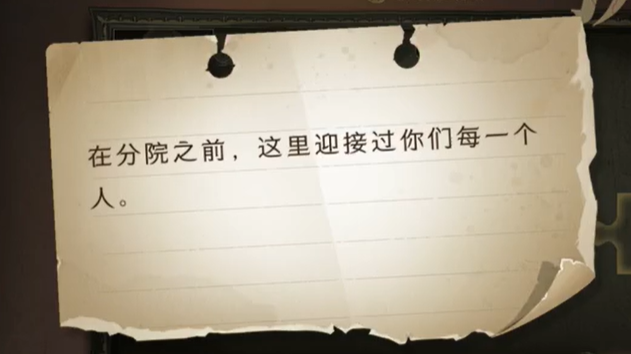 在分院之前，这里迎接过你们每一个
人。